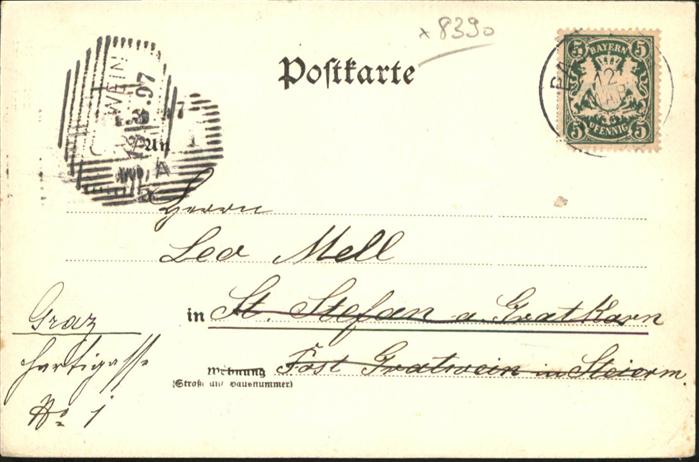 x 8390
Postkarte
5 BAYERN 5
5 PFENNIG 5
12
WEIN
97
Herrn
Leo Mell
in St. Stefan a. Gratkorn
Wohnung Post Gratwein in Steierm.
(Straße und Hausnummer)
Graz
Hartigasse
No 1